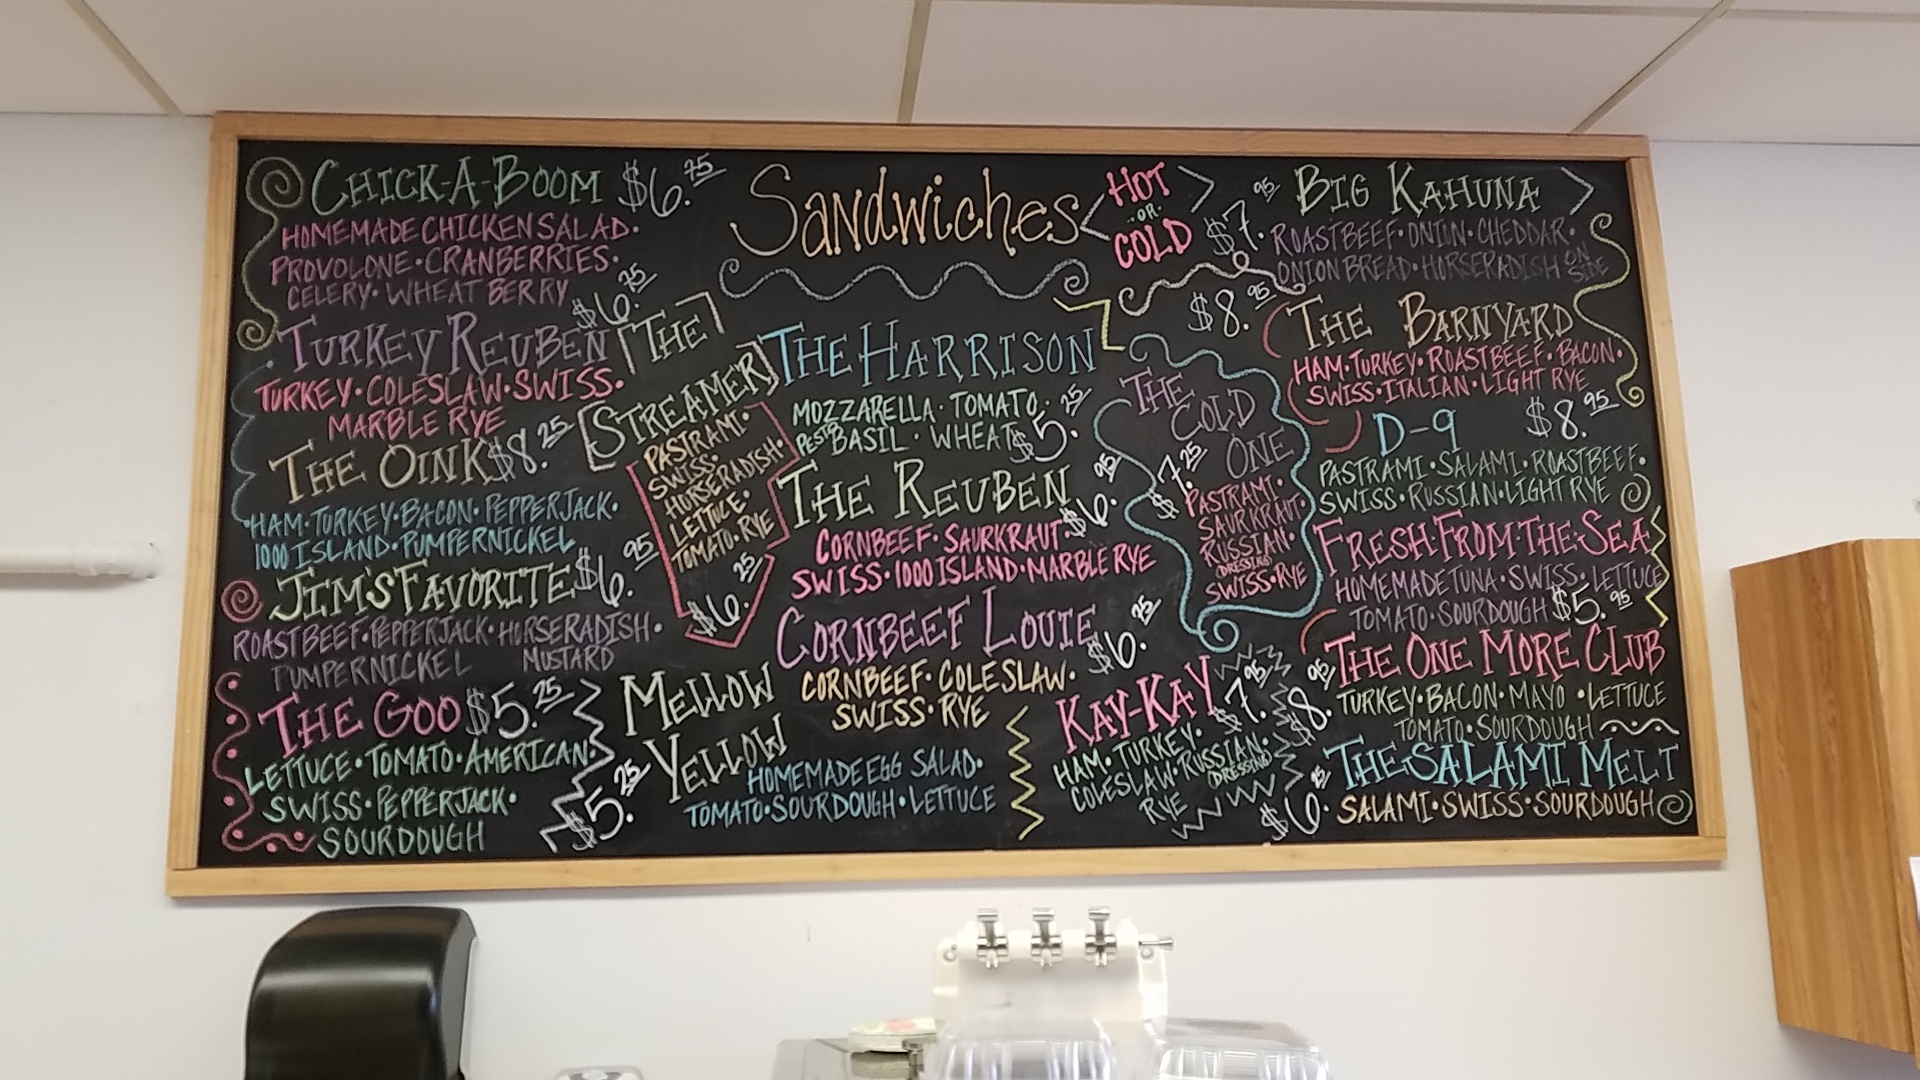 Sandwiches
< HOT >
..OR..
COLD
CHICK-A-BOOM $6.25
HOMEMADE CHICKEN SALAD·
PROVOLONE·CRANBERRIES·
CELERY·WHEAT BERRY
TURKEY REUBEN $6.25
TURKEY·COLESLAW·SWISS·
MARBLE RYE
THE OINK $8.25
HAM·TURKEY·BACON·PEPPERJACK·
1000 ISLAND·PUMPERNICKEL
JIM'S FAVORITE $6.95
ROASTBEEF·PEPPERJACK·HORSERADISH·
PUMPERNICKEL MUSTARD
THE GOO $5.25
LETTUCE·TOMATO·AMERICAN·
SWISS·PEPPERJACK·
SOURDOUGH
[THE]
[STREAMER]
PASTRAMI·
SWISS·
HORSERADISH·
LETTUCE·
TOMATO·RYE
$6.25
THE HARRISON
MOZZARELLA·TOMATO·
PESTO BASIL·WHEAT $5.25
THE REUBEN
CORNBEEF·SAURKRAUT· $6.95
SWISS·1000 ISLAND·MARBLE RYE
CORNBEEF LOUIE $6.25
CORNBEEF·COLESLAW·
SWISS·RYE
MELLOW
YELLOW
$5.25
HOMEMADE EGG SALAD·
TOMATO·SOURDOUGH·LETTUCE
THE
COLD
ONE
$7.25
PASTRAMI·
SAURKRAUT·
RUSSIAN·
(DRESSING)
SWISS·RYE
KAY-KAY $7.95
HAM·TURKEY·
COLESLAW·RUSSIAN·
(DRESSING)
RYE
$7.95 BIG KAHUNA
ROASTBEEF·ONION·CHEDDAR·
ONION BREAD·HORSERADISH ON SIDE
$8.95
THE BARNYARD
HAM·TURKEY·ROASTBEEF·BACON·
SWISS·ITALIAN·LIGHT RYE
D-9 $8.95
PASTRAMI·SALAMI·ROASTBEEF·
SWISS·RUSSIAN·LIGHT RYE
FRESH·FROM·THE·SEA
HOMEMADE TUNA·SWISS·LETTUCE
TOMATO·SOURDOUGH $5.95
THE ONE MORE CLUB
$8.95 TURKEY·BACON·MAYO·LETTUCE
TOMATO·SOURDOUGH
THE SALAMI MELT
$6.25 SALAMI·SWISS·SOURDOUGH